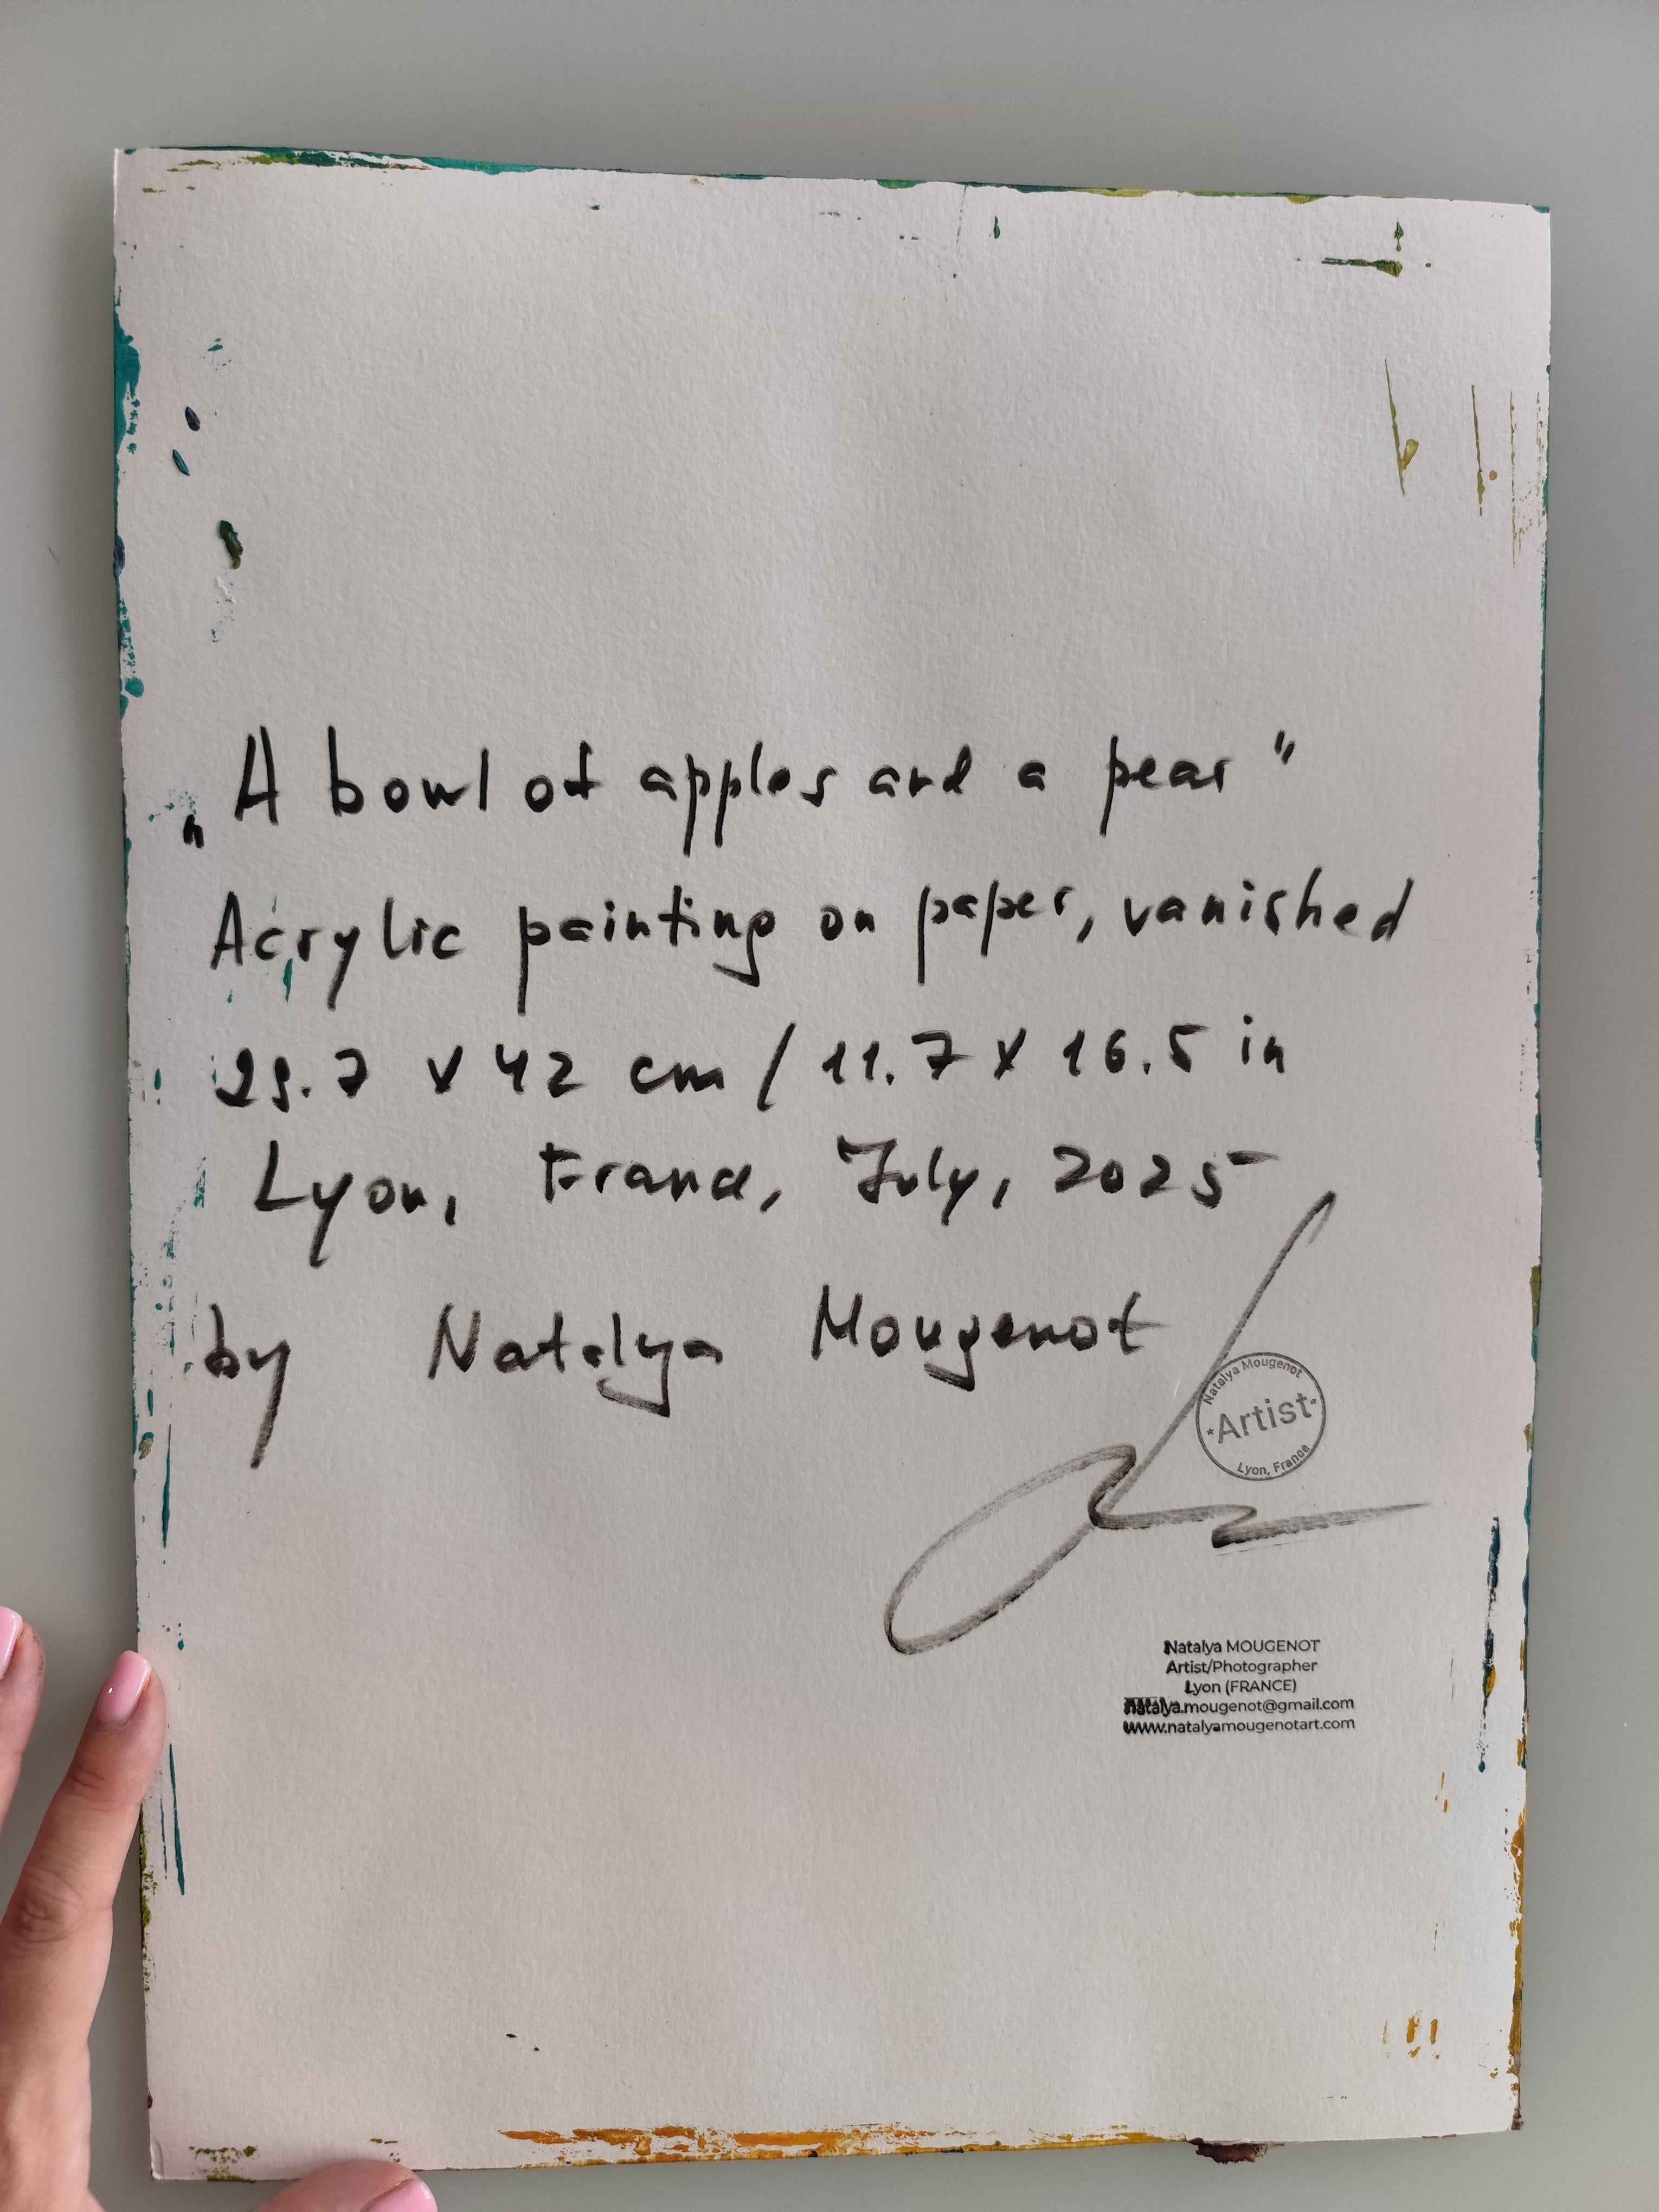 „A bowl of apples and a pear"
Acrylic painting on paper, vanished
29.7 x 42 cm / 11.7 x 16.5 in
Lyon, France, July, 2025
by Natalya Mougenot
Natalya Mougenot
*Artist*
Lyon, France
Natalya MOUGENOT
Artist/Photographer
Lyon (FRANCE)
natalya.mougenot@gmail.com
www.natalyamougenotart.com